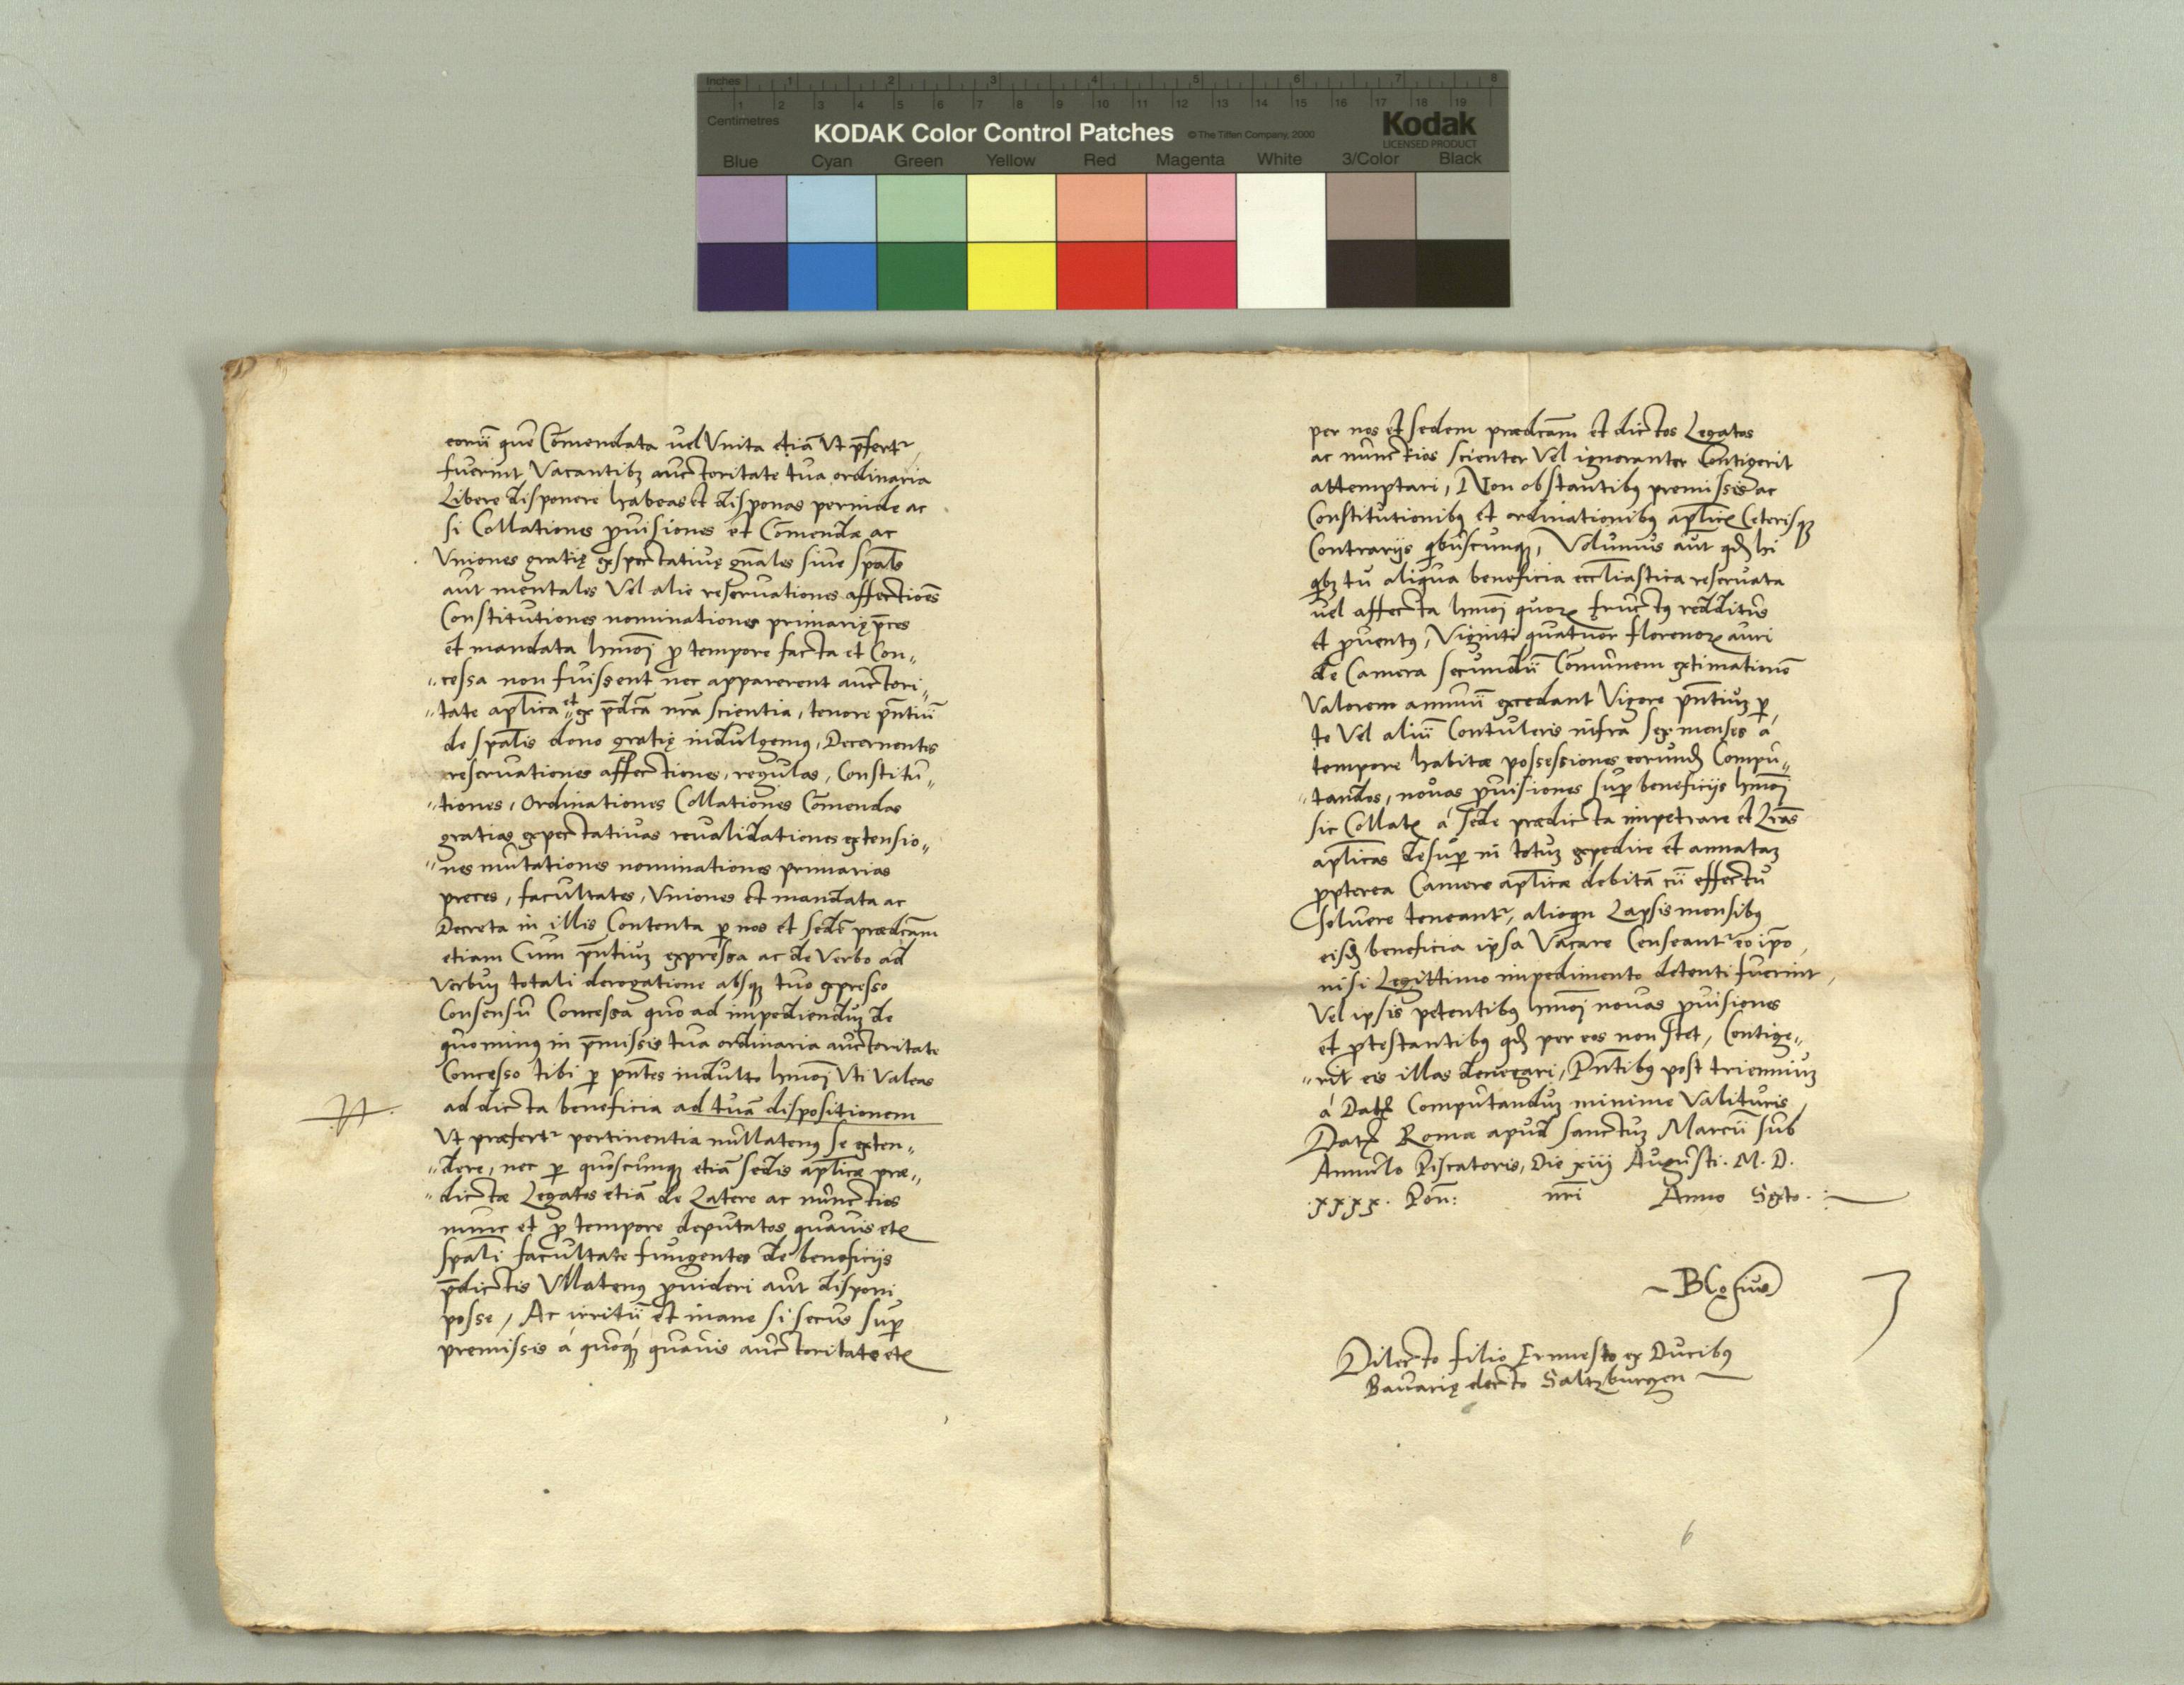 Inches 1 2 3 4 5 6 7 8
1 2 3 4 5 6 7 8 9 10 11 12 13 14 15 16 17 18 19
Centimetres
KODAK Color Control Patches © The Tiffen Company, 2000 Kodak
LICENSED PRODUCT
Blue Cyan Green Yellow Red Magenta White 3/Color Black
eorū que Cōmendata uel Vnita etiā Vt p̄fertr
fuerint Vacantibz auctoritate tua ordinaria
Libere disponere habeas et disponas perinde ac
si Collationes prouisiones et Cōmendæ ac
Vniones gratię expectatiuę gn̄ales siue spāles
aut mentales Vel alie reseruationes affectiōes
Constitutiones nominationes primarię p̄ces
et mandata hmōi pro tempore facta et Con„
„cessa non fuissent nec apparerent auctori„
„tate aplica et ex p̄dcā nrā scientia, tenore pn̄tiū
de spālis dono gratię indulgemus, Decernentes
reseruationes affectiones, regulas, Constitu„
„tiones, Ordinationes Collationes Cōmendas
gratias expectatiuas reualidationes extensio„
„nes mutationes nominationes primarias
preces, facultates, Vniones et mandata ac
Decreta in illis Contenta p nos et sedē prædcām
etiam Cum pn̄tiuz expressa ac de Verbo ad
Verbuz totali derogatione absqz tuo expresso
Consensu Concessa quo ad impedienduz de
quominus in p̄missis tua ordinaria auctoritate
Concesso tibi p pn̄tes indulto hmōi Vti Valeas
ad dicta beneficia ad tuā dispositionem
Vt præfertr pertinentia nullatenus se exten„
„dere, nec p quoscunqz etiā sedis aplicæ præ„
„dictæ Legatos etiā de Latere ac nunctios
nunc et pro tempore deputatos quauis etc
spāli facultate fungentes de beneficijs
p̄dictis Vllatenus prouideri aut disponi
posse, Ac irritū et inane si secus sup
premissis á quoqz quauis auctoritate etc
per nos et sedem prædcām et dictos Legatos
ac nunctios scienter Vel ignoranter Contigerit
attemptari, Non obstantibus premissis ac
Constitutionibus et ordinationibus aplicis Ceterisqz
Contrarijs qbuscunqz, Volumus aut qd hi
qbz tu aliqua beneficia eccliastica reseruata
uel affecta hmōi quorz fructus redditus
et prouentus, Viginti quatuor florenorz auri
de Camera secundū Cōmunem extimationē
Valorem annuū excedant Vigore pn̄tiuz p
te Vel aliū Contuleris infra sex menses a
tempore habitæ possessiones eorund Compu„
„tandos, nouas prouisiones sup beneficijs hmōi
sic Collatis á sede prædicta impetrare et Lrās
aplicas desup in totuz expedire et annataz
propterea Camere aplicæ debitā cū effectu
soluere teneantr, alioqn Lapsis mensibus
eisd beneficia ipsa Vacare Censeantr eo ipō,
nisi Legittimo impedimento detenti fuerint,
Vel ipsis petentibus hmōi nouas prouisiones
et protestantibus qd per eos non stet, Contige„
„rit eis illas denegari, Pn̄tibus post trienniuz
á Datis Computanduz minime Valituris,
Datis Romæ apud sanctuz Marcū sub
Annulo Piscatoris, Die xiij Augusti. M. D.
.xxxx. Pon̄: nri Anno Sexto.
Blosius
Dilecto filio Ernnesto ex Ducibus
Bauarię electo Saltzburgen
6